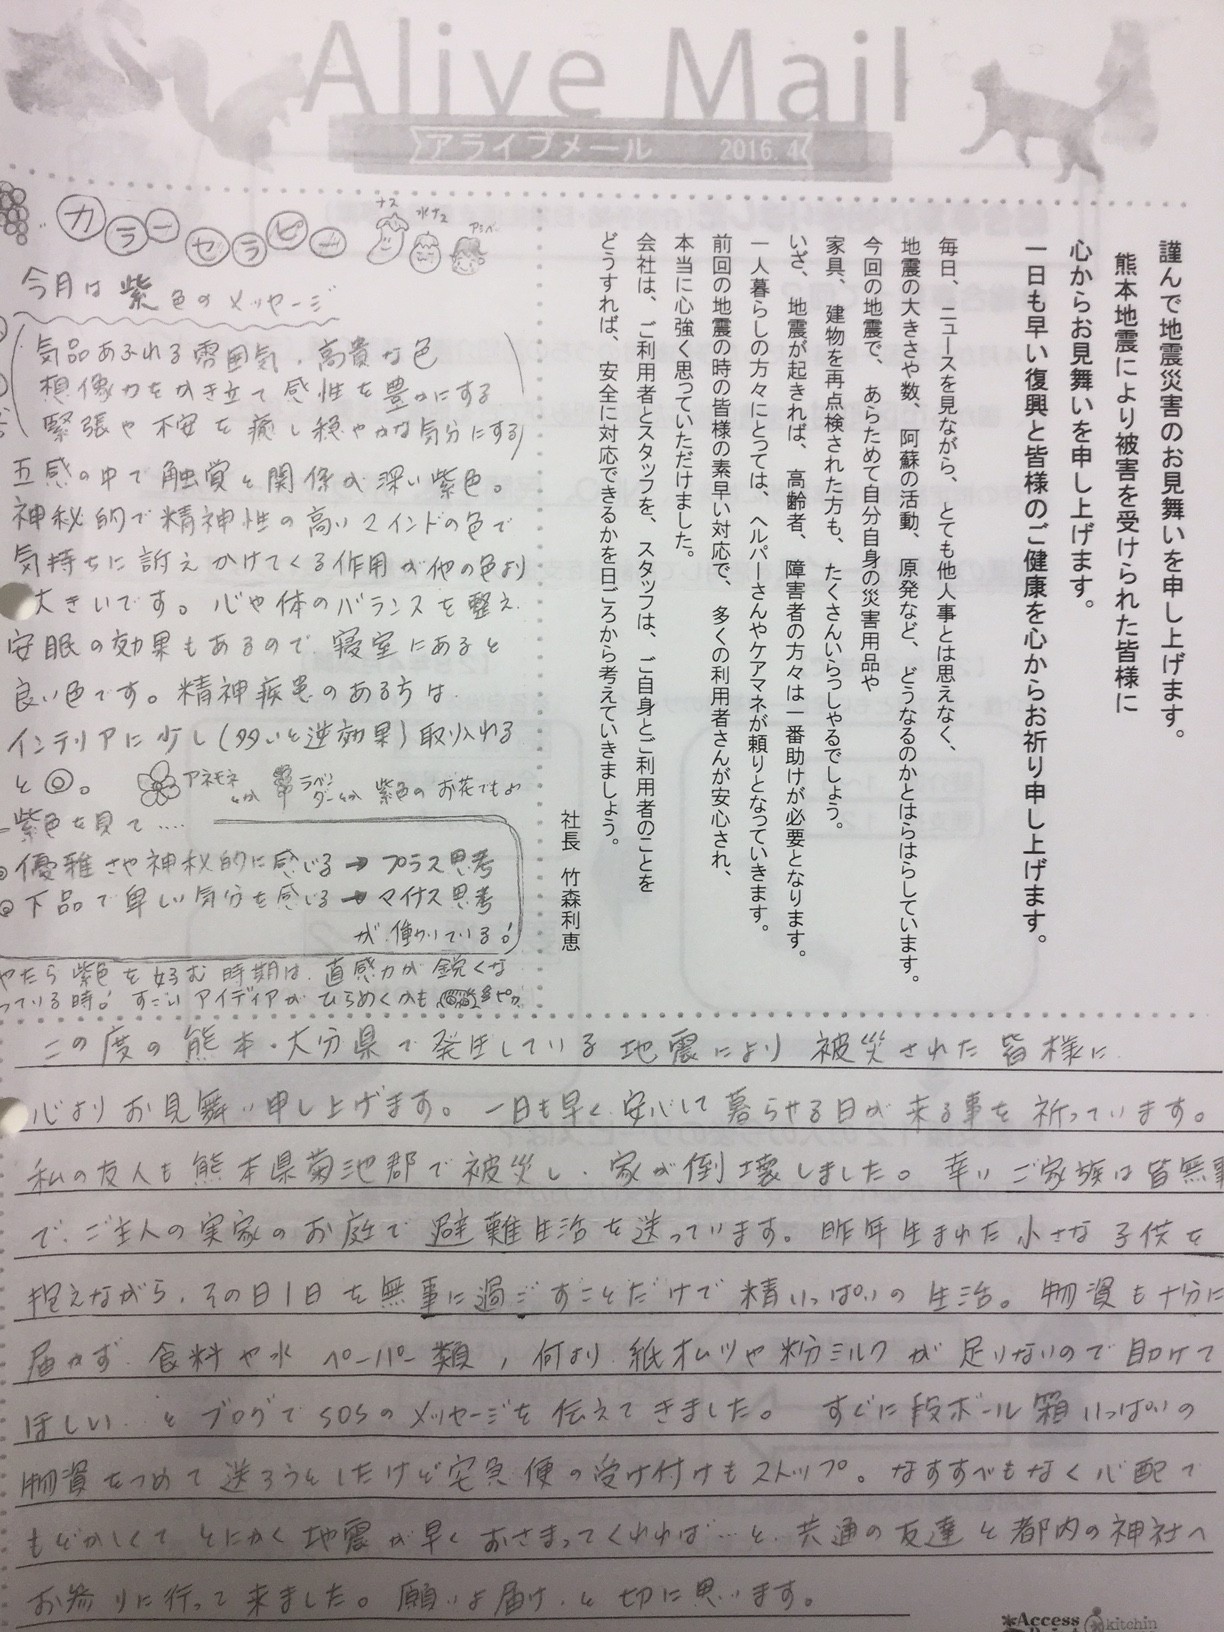 Alive Mail
アライブメール 2016.4
謹んで地震災害のお見舞いを申し上げます。
熊本地震により被害を受けられた皆様に
心からお見舞いを申し上げます。
一日も早い復興と皆様のご健康を心からお祈り申し上げます。
毎日、ニュースを見ながら、とても他人事とは思えなく、
地震の大きさや数、阿蘇の活動、原発など、どうなるのかとはらはらしています。
今回の地震で、あらためて自分自身の災害用品や
家具、建物を再点検された方も、たくさんいらっしゃるでしょう。
いざ、地震が起きれば、高齢者、障害者の方々は一番助けが必要となります。
一人暮らしの方々にとっては、ヘルパーさんやケアマネが頼りとなっていきます。
前回の地震の時の皆様の素早い対応で、多くの利用者さんが安心され、
本当に心強く思っていただけました。
会社は、ご利用者とスタッフを、スタッフは、ご自身とご利用者のことを
どうすれば、安全に対応できるかを日ごろから考えていきましょう。
社長 竹森利恵
カラーセラピー
ナス
水ナス
今月は紫色のメッセージ
気品あふれる雰囲気、高貴な色
想像力をかき立て感性を豊かにする
緊張や不安を癒し穏やかな気分にする
五感の中で触覚と関係が深い紫色。
神秘的で精神性の高いマインドの色で
気持ちに訴えかけてくる作用が他の色より
大きいです。心や体のバランスを整え
安眠の効果もあるので寝室にあると
良い色です。精神疾患のある方は
インテリアに少し(多いと逆効果)取り入れる
と◎。
アネモネとか ラベンダーとか 紫色のお花でもよ
紫色を見て‥‥
優雅さや神秘的に感じる→プラス思考
下品で卑しい気分を感じる→マイナス思考
が働いている!
やたら紫色を好む時期は、直感力が鋭くな
っている時!すごいアイディアがひらめくかも
この度の熊本・大分県で発生している地震により被災された皆様に
心よりお見舞い申し上げます。一日も早く安心して暮らせる日が来る事を祈っています。
私の友人も熊本県菊池郡で被災し、家が倒壊しました。幸いご家族は皆無事
で、ご主人の実家のお庭で避難生活を送っています。昨年生まれた小さな子供を
抱えながら、その日1日を無事に過ごすことだけで精いっぱいの生活。物資も十分に
届かず、食料や水、ペーパー類、何より紙オムツや粉ミルクが足りないので助けて
ほしい…とブログでSOSのメッセージを伝えてきました。すぐに段ボール箱いっぱいの
物資をつめて送ろうとしたけど宅急便の受け付けもストップ。なすすべもなく心配で
もどかしくてとにかく地震が早くおさまってくれれば…と、共通の友達と都内の神社へ
お参りに行って来ました。願いよ届け、と切に思います。
Access
Point
kitchin